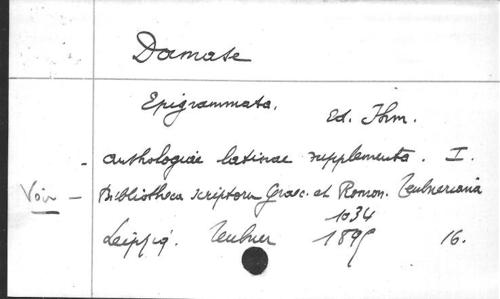 Damase
Epigrammata. Ed. Ihm.
- Anthologiae latinae supplementa. I.
Voir - Bibliotheca scriptoru Graec. et Roman. Teubneriana
1034
Leipzig. Teubner 1895 16.